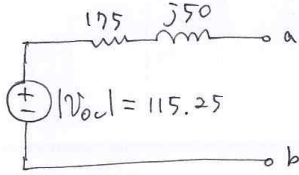 175 j50
a
+
−
|Voc| = 115.25
b